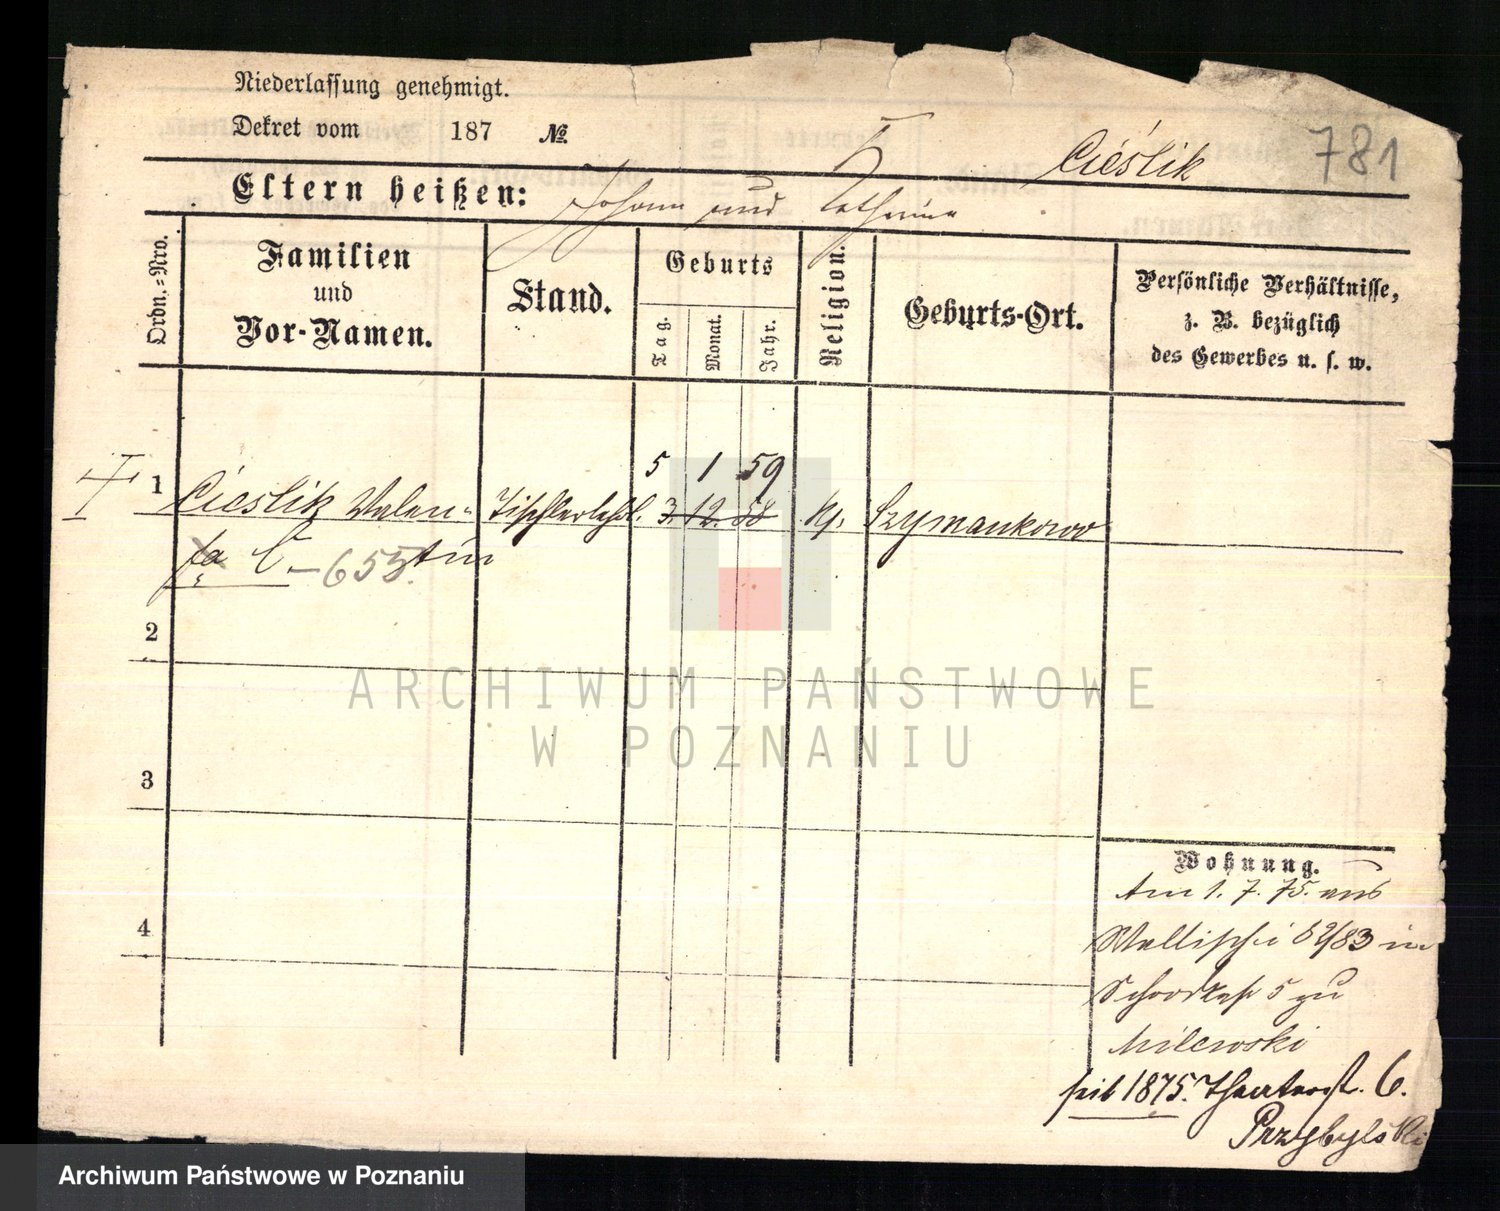 Niederlassung genehmigt.
Dekret vom 187 No.
Cieślik 781
Eltern heißen: Johann und Catharina
Ordn.-Nro.
Familien und Vor-Namen.
Stand.
Geburts
Tag.
Monat.
Jahr.
Religion.
Geburts-Ort.
Persönliche Verhältnisse,
z. B. bezüglich
des Gewerbes u. s. w.
5 1 59
1 Cieslik Valen- Tischlerlehrl. 3. 12. 58 kf. Szymankowo
tin
655.
2
3
4
Wohnung.
Am 1. 7. 75. aus
Wallischei 82/83 in
5 zu
Milewski
seit 1875. Theaterstr. 6.
Przybylski
ARCHIWUM PAŃSTWOWE
W POZNANIU
Archiwum Państwowe w Poznaniu